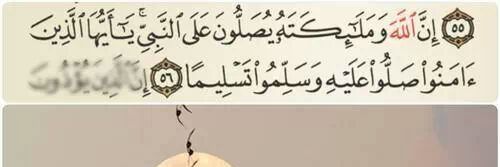 ٥٥ إِنَّ ٱللَّهَ وَمَلَـٰٓئِكَتَهُۥ يُصَلُّونَ عَلَى ٱلنَّبِىِّ ۚ يَـٰٓأَيُّهَا ٱلَّذِينَ
ءَامَنُوا۟ صَلُّوا۟ عَلَيْهِ وَسَلِّمُوا۟ تَسْلِيمًا ٥٦ إِنَّ ٱلَّذِينَ يُؤْذُونَ